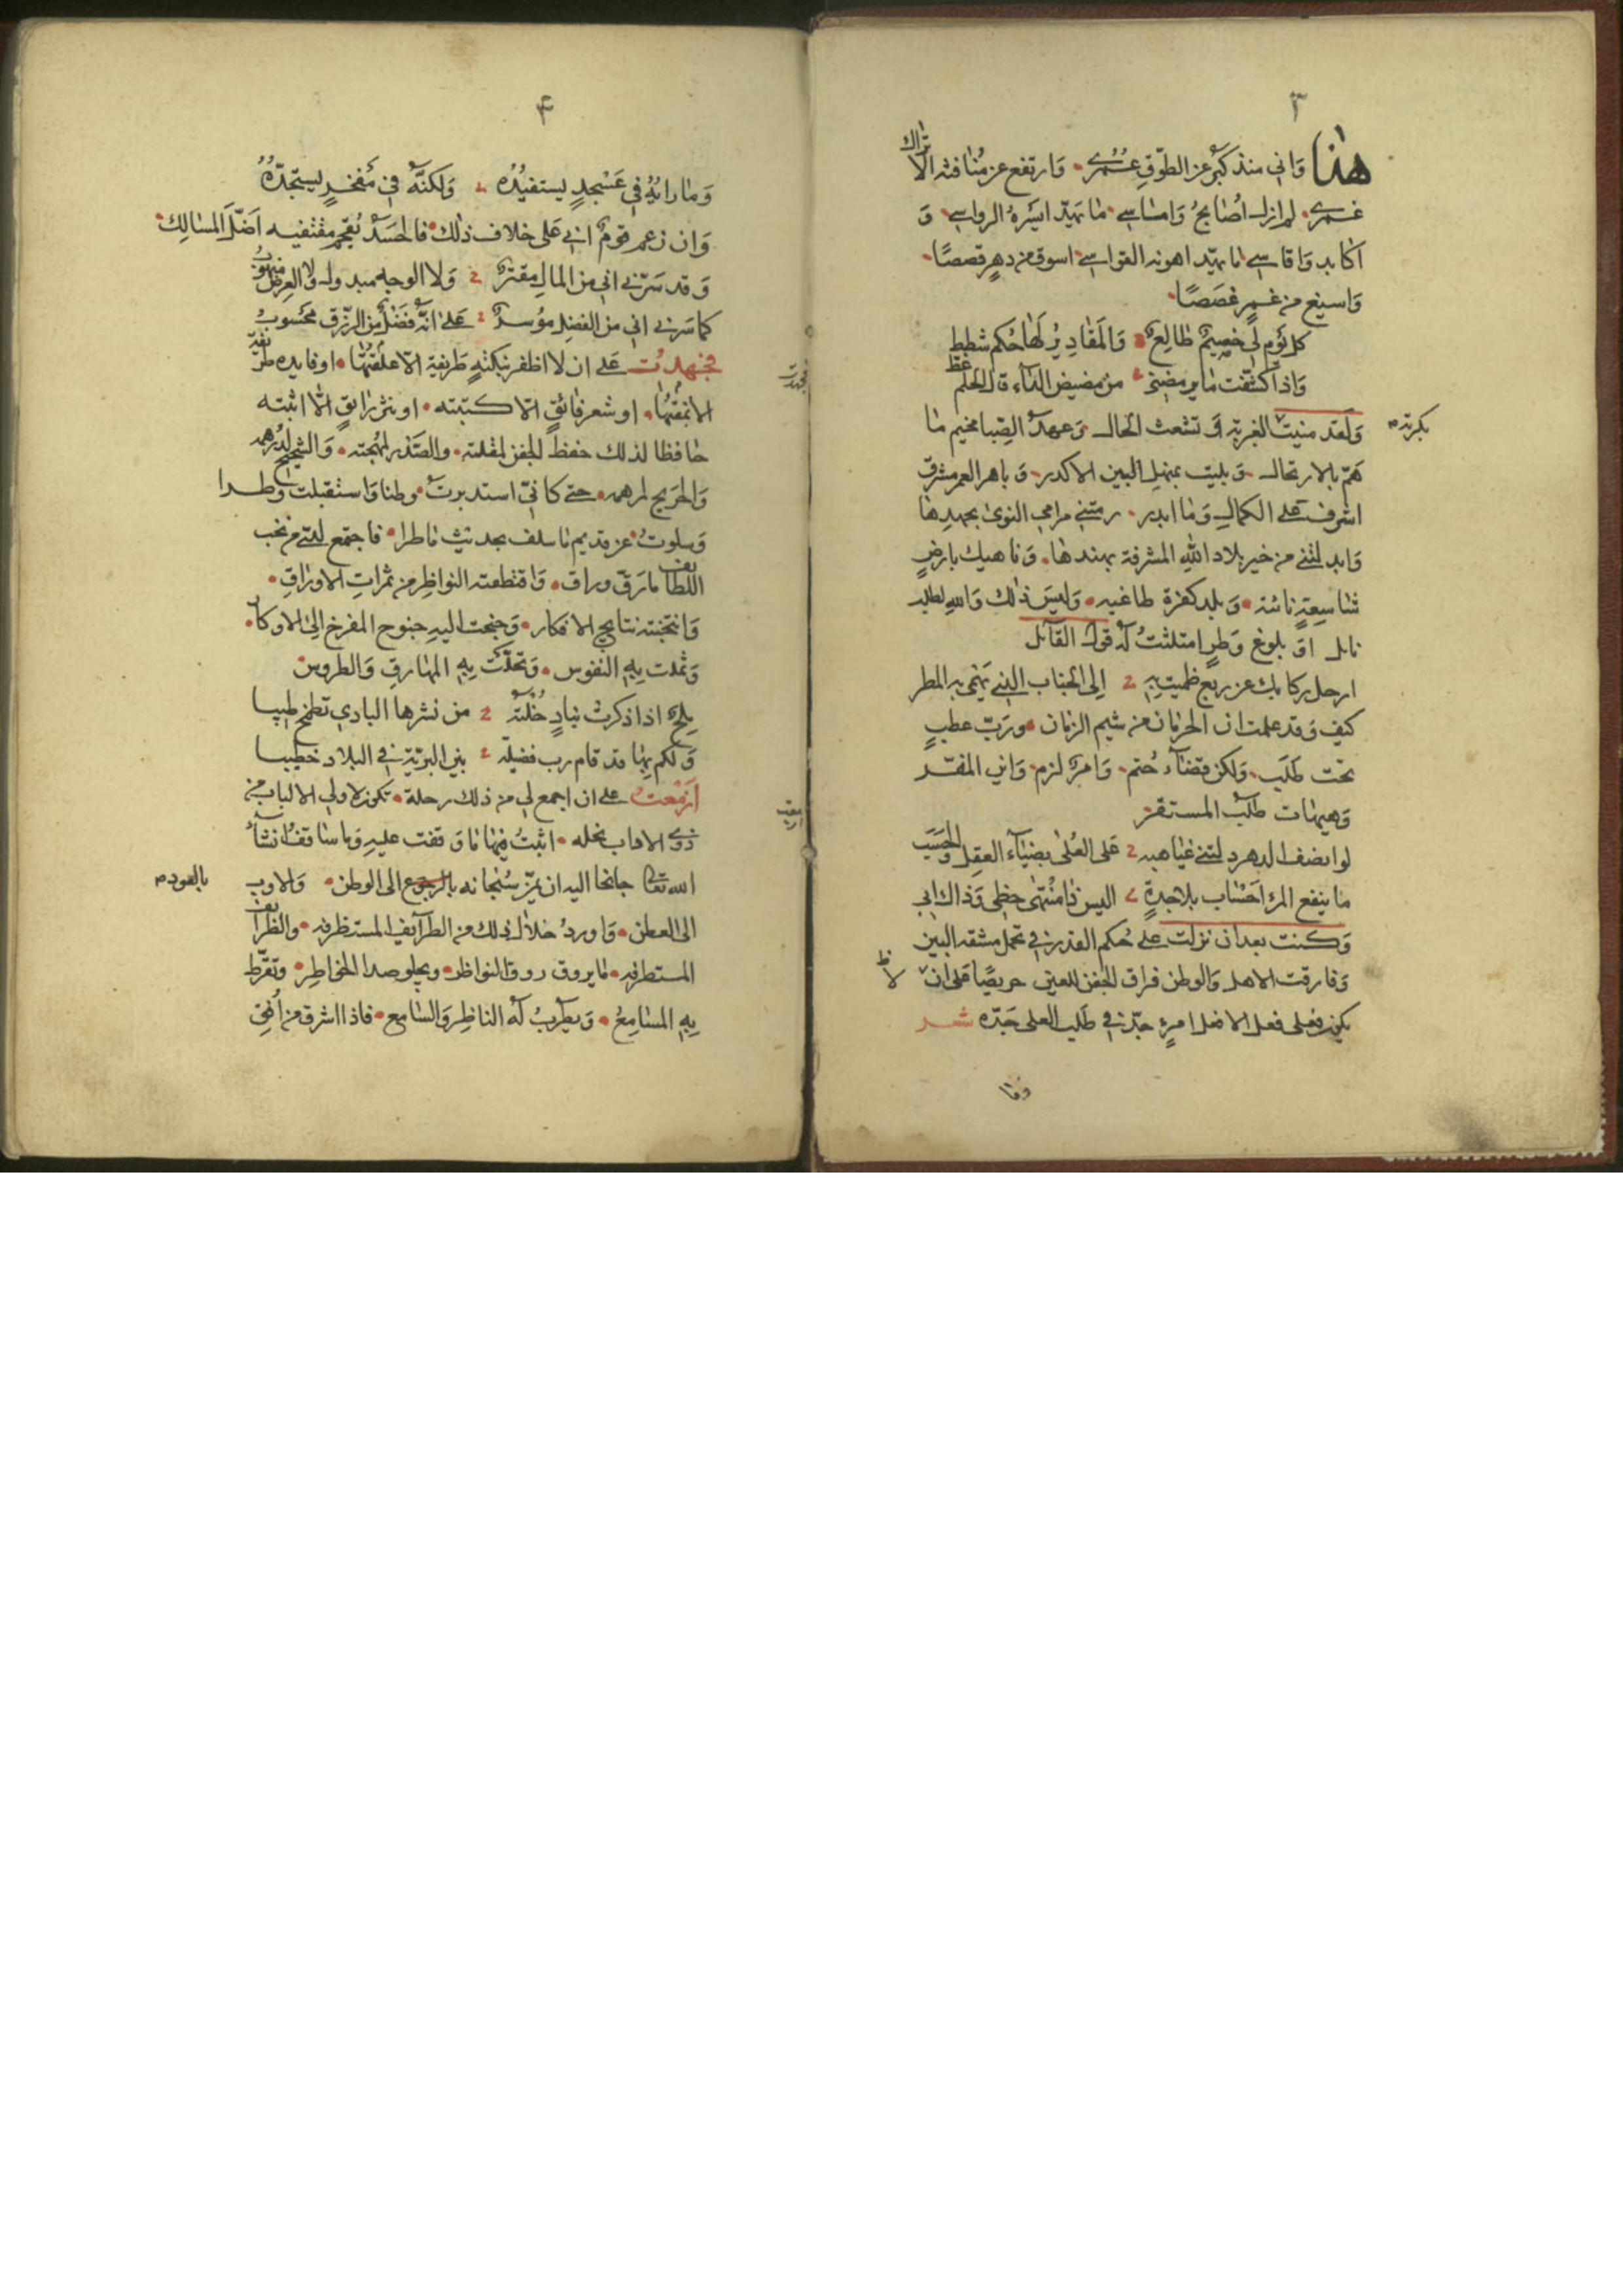 ٣
هذا وَاني منذ كبر عن الطوق عمرى وَارتفع عن منافثه الاتراك
غمرى لم ازل اصابح وَاماسي ما يهيد ايسره الرواسي وَ
اكابد وَاقاسي ما يهيد اهونه القواسي اسوق من دهر قصصًا
وَاسيغ من غم غصصًا
كل يوم لي خصيم طالع وَالمقادير لها حكم شطط
وَاذا كشفت ما يرمضني من مضيض الداء قال الحلم غط
وَلقد منيت الغربة في تشعث الحال وَعهد الصبا مخيم ما
بكربة
هم بالارتحال وَبليت بمنهل البين الاكدر وَباهر العمر مشرق
اشرف على الكمال وَما ابدر رمتني مرامي النوى بجهدها
وَابدلتني من خير بلاد الله المشرفة بهندها وَناهيك بارض
شاسعة نائية وَبلد كفرة طاغيه وَليس ذلك وَالله لطلب
نايل اوْ بلوغ وَطر امتلثت له قول القآئل
ارحل ركابك عن ربع ظميت به الى الجناب الذي يهمي به المطر
كيف وَقد علمت ان الحرمان من شيم الزمان وربّ عطب
تحت طلب وَلكن قضاء حتم وَامر لزم وَاني المفـر
وَهيهات طلب المستقر
لو ابصف الدهر دلتني غياهبه على العلى بضياء العقل والحسب
ما ينفع المرء احساب بلا جدة اليس ذا منتهى حظي وَذاك ابي
وَكنت بعد ان نزلت على حكم القدر في تحمل مشقة البين
وَفارقت الاهل وَالوطن فراق الجفن للعين حريصًا على ان
لا ظ
يكون فعلى فعل الافعل امرئ جدّ في طلب العلى جَدّه شعر
وما
٤
وَما رابهُ في عَسْجدٍ يستفيدُه وَلكنّه في مَفخرٍ يستجدّهُ
وَان زعم قومٌ اني على خلاف ذلك فالحسَدْ يُقحم مقتفيه اضّل المسالك
وَقد سَرّني اني من المال مقتر وَلا الوجه مبذول وَلا العِرض منهوب
كما سَرني اني من الفضل مؤسر على انّه فضل من الرّزق محسوب
فجهدت على ان لا اظفر بنكتةٍ طَريفة الّا علّقتُها او فايده طرّيفه
فجهدت
الا نمقتها او شعر فائق الّا كتبته او نثر رايقٍ الّا اثبته
حافظا لذلك حفظ الجفن لمقلته والصَدر لمهجته وَالشحيح لدرهمه
وَالجريح لمرهمه حتى كانيّ استدبرت وطنا وَاستقبلت وطـرا
وَسلوت عن قديم ما سلف بحديث ما طرا فاجتمع لدي من نخب
اللطايف ما رَقّ وراق وَاقتطعته النواظر من ثمراتِ الاوراق
وَانتجته نتايج الافكار وَجنحت اليهِ جنوح المفرخ الى الاوكار
وَثملت بِهِ النفوس وَتحلّت بِهِ المهارق وَالطروس
ملح اذا ذكرت بنادٍ خلته من نشرها البادي تطمخ طيبا
وَلكم بها قد قام رب فضيلة بين البريّة في البلاد خطيبا
ازمعت على ان اجمع لي من ذلك رحلة تكون لاولي الالباب من
ازمعت
ذوى الاداب نحله اثبتُ فيها ما وَقفت عليهِ وَما ساقف ان شآء
الله تعا جانحا اليه ان يمّن سُبحانه بالرجوع الى الوطن وَالاوب
بالعود م
الى العطن وَاوردُ خلال ذلك من الطرآيف المستظرفه والظرايف
المستطرفه ما يروق روق النواظر ويجلو صدا الخواطِر وتقرّط
بِهِ المسَامِعُ وَيطربُ لَه الناظِر وَالسّامع فاذا اشرق من اُفق